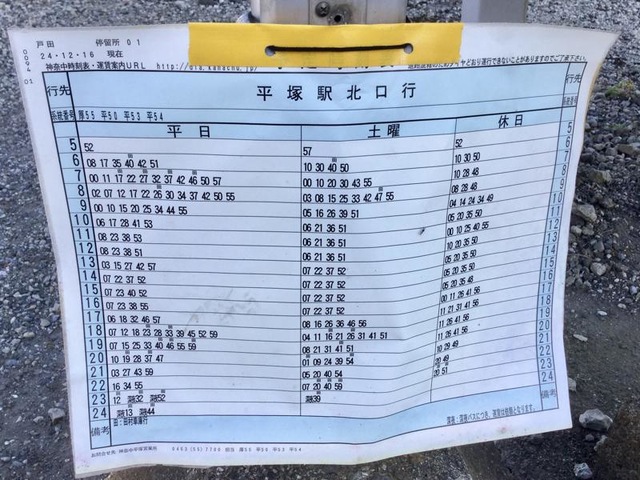 戸田 停留所 01
24・12・16 現在
神奈中時刻表・運賃案内URL
行先 平塚駅北口行 行先
系統番号 厚55 平50 平53 平54
平日 土曜 休日
5 52 57 52 5
6 08 17 35 40 42 51 10 30 40 50 10 30 50 6
7 00 11 17 22 27 32 37 42 46 50 57 00 10 20 30 43 55 10 28 48 7
8 02 07 12 17 22 26 30 34 37 42 50 55 03 08 15 25 33 42 47 55 08 28 48 8
9 00 10 15 20 25 34 44 55 05 16 26 39 51 04 14 24 34 49 9
10 06 17 28 41 53 06 21 36 51 05 20 35 50 10
11 08 23 38 53 06 21 36 51 00 10 25 40 55 11
12 08 23 38 51 06 21 36 51 10 20 35 50 12
13 03 15 27 42 57 07 22 37 52 05 20 35 50 13
14 07 22 37 52 07 22 37 52 05 20 35 50 14
15 07 23 40 52 07 22 37 52 05 20 35 48 15
16 07 23 38 55 07 22 37 52 00 11 26 41 56 16
17 06 18 32 46 57 08 16 26 36 46 56 11 21 31 41 56 17
18 07 12 18 23 28 33 39 45 52 59 04 11 16 21 26 31 41 51 11 26 41 56 18
19 07 15 25 33 40 46 55 59 08 21 31 41 51 11 26 41 56 19
20 10 19 28 37 47 01 09 24 39 54 11 29 49 20
21 03 27 43 59 05 20 40 54 20 49 21
22 16 34 55 07 20 40 59 20 51 22
23 12 深32 深52 深39 23
24 深13 深44 24
備考 田:田村車庫行 深夜:深夜バスにつき、運賃は倍額となります。 備考
お問合せ先 神奈中平塚営業所 0463(55)7700 担当 厚55 平50 平53 平54